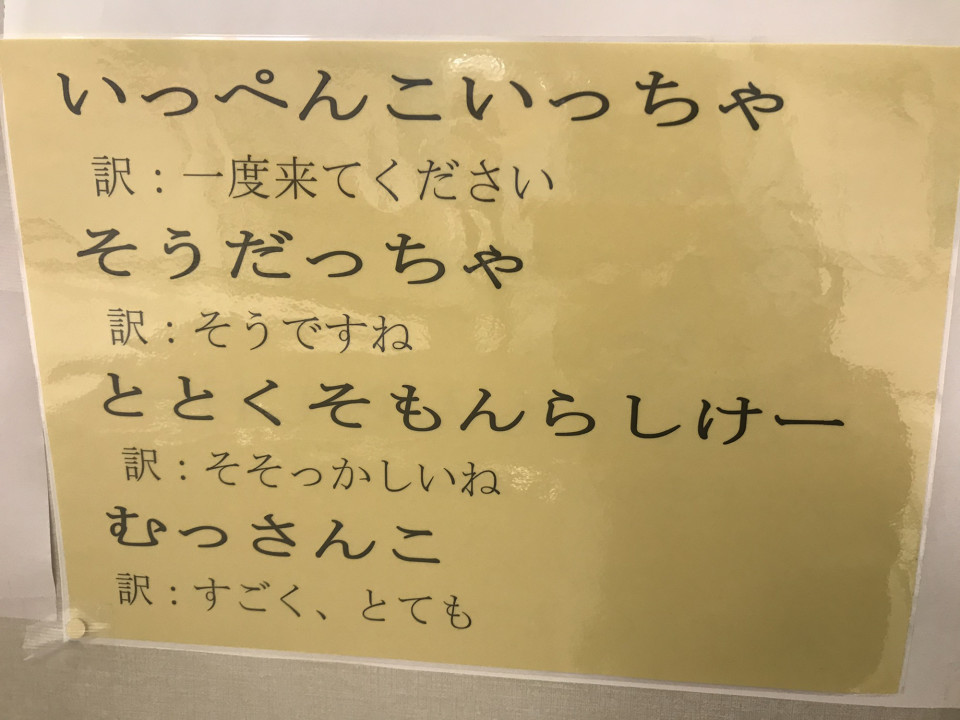 いっぺんこいっちゃ
訳：一度来てください
そうだっちゃ
訳：そうですね
ととくそもんらしけー
訳：そそっかしいね
むっさんこ
訳：すごく、とても